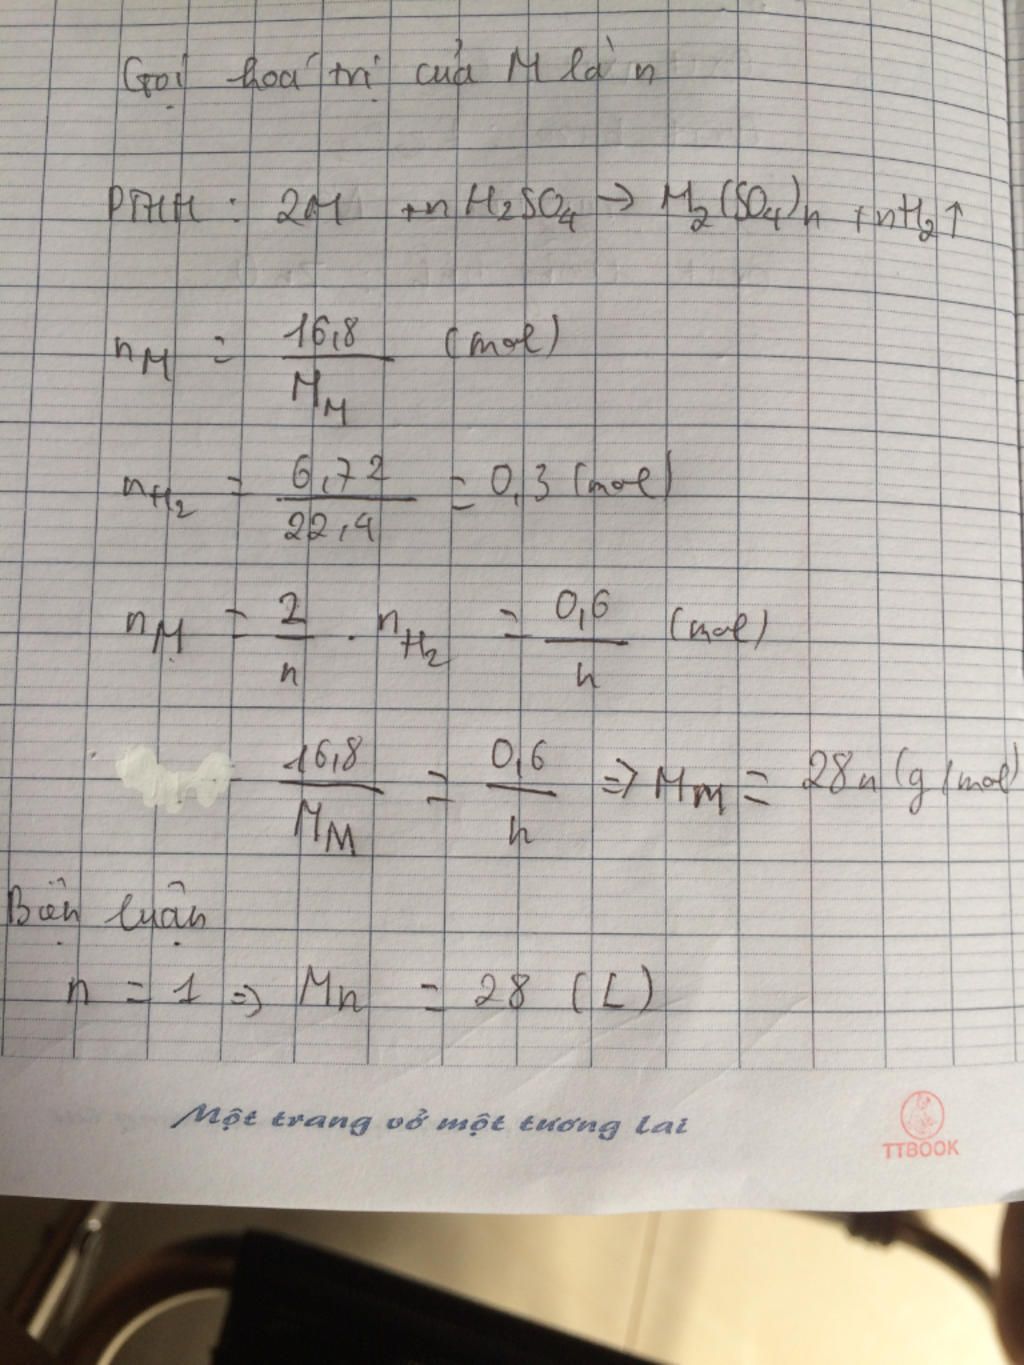 Gọi hoá trị của M là n
PTHH : 2M + nH₂SO₄ → M₂(SO₄)n + nH₂↑
nM = 16,8 / MM (mol)
nH₂ = 6,72 / 22,4 = 0,3 (mol)
nM = 2/n . nH₂ = 0,6/n (mol)
16,8 / MM = 0,6/n => MM = 28n (g/mol)
Biện luận
n = 1 => Mn = 28 (L)
Một trang vở một tương lai
TTBOOK